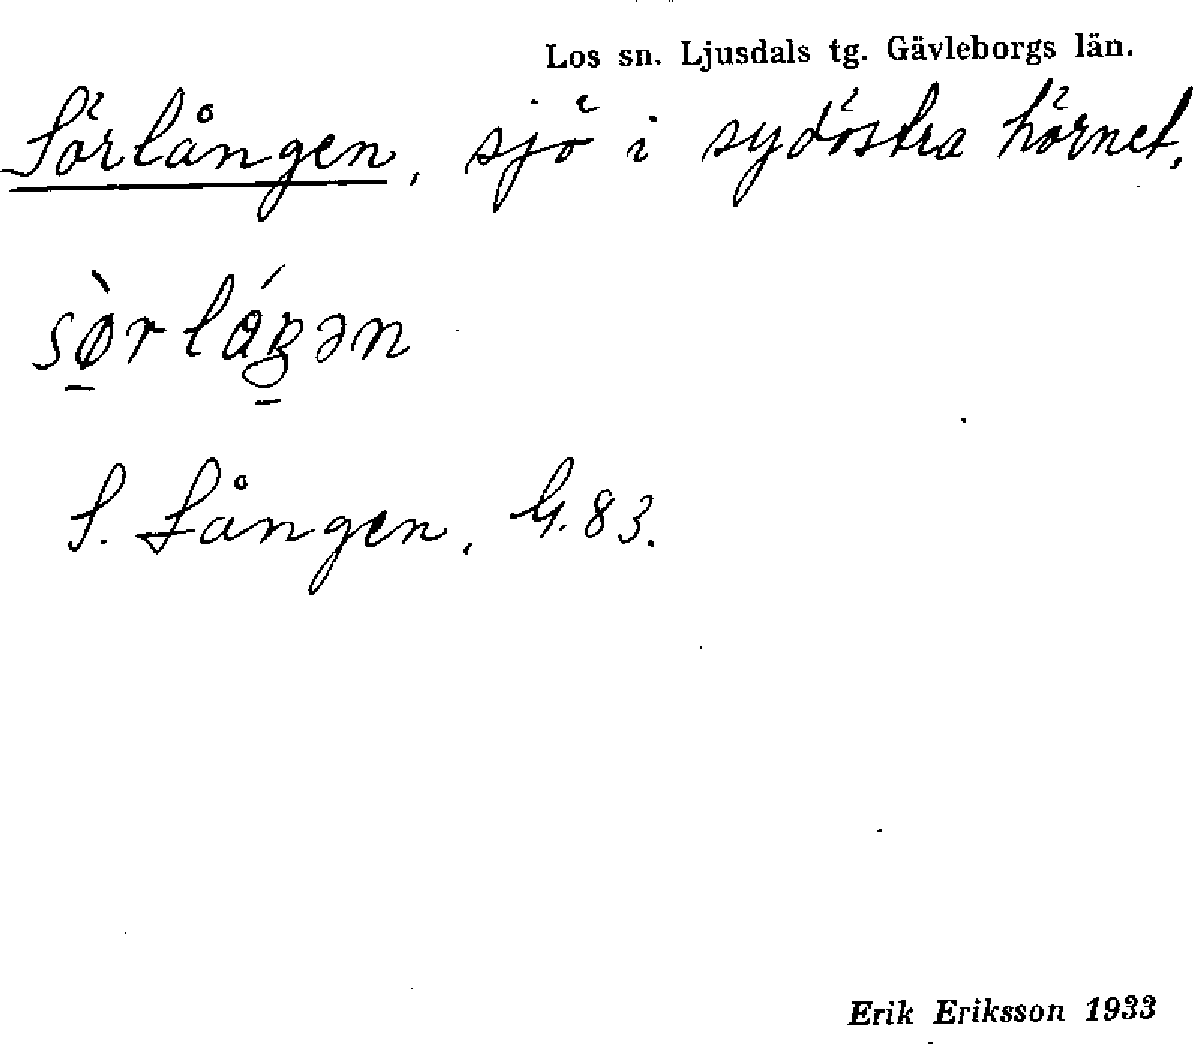 Los sn. Ljusdals tg. Gävleborgs län.
Sörlången, sjö i sydöstra hörnet.
S. Lången. G. 83.
Erik Eriksson 1933